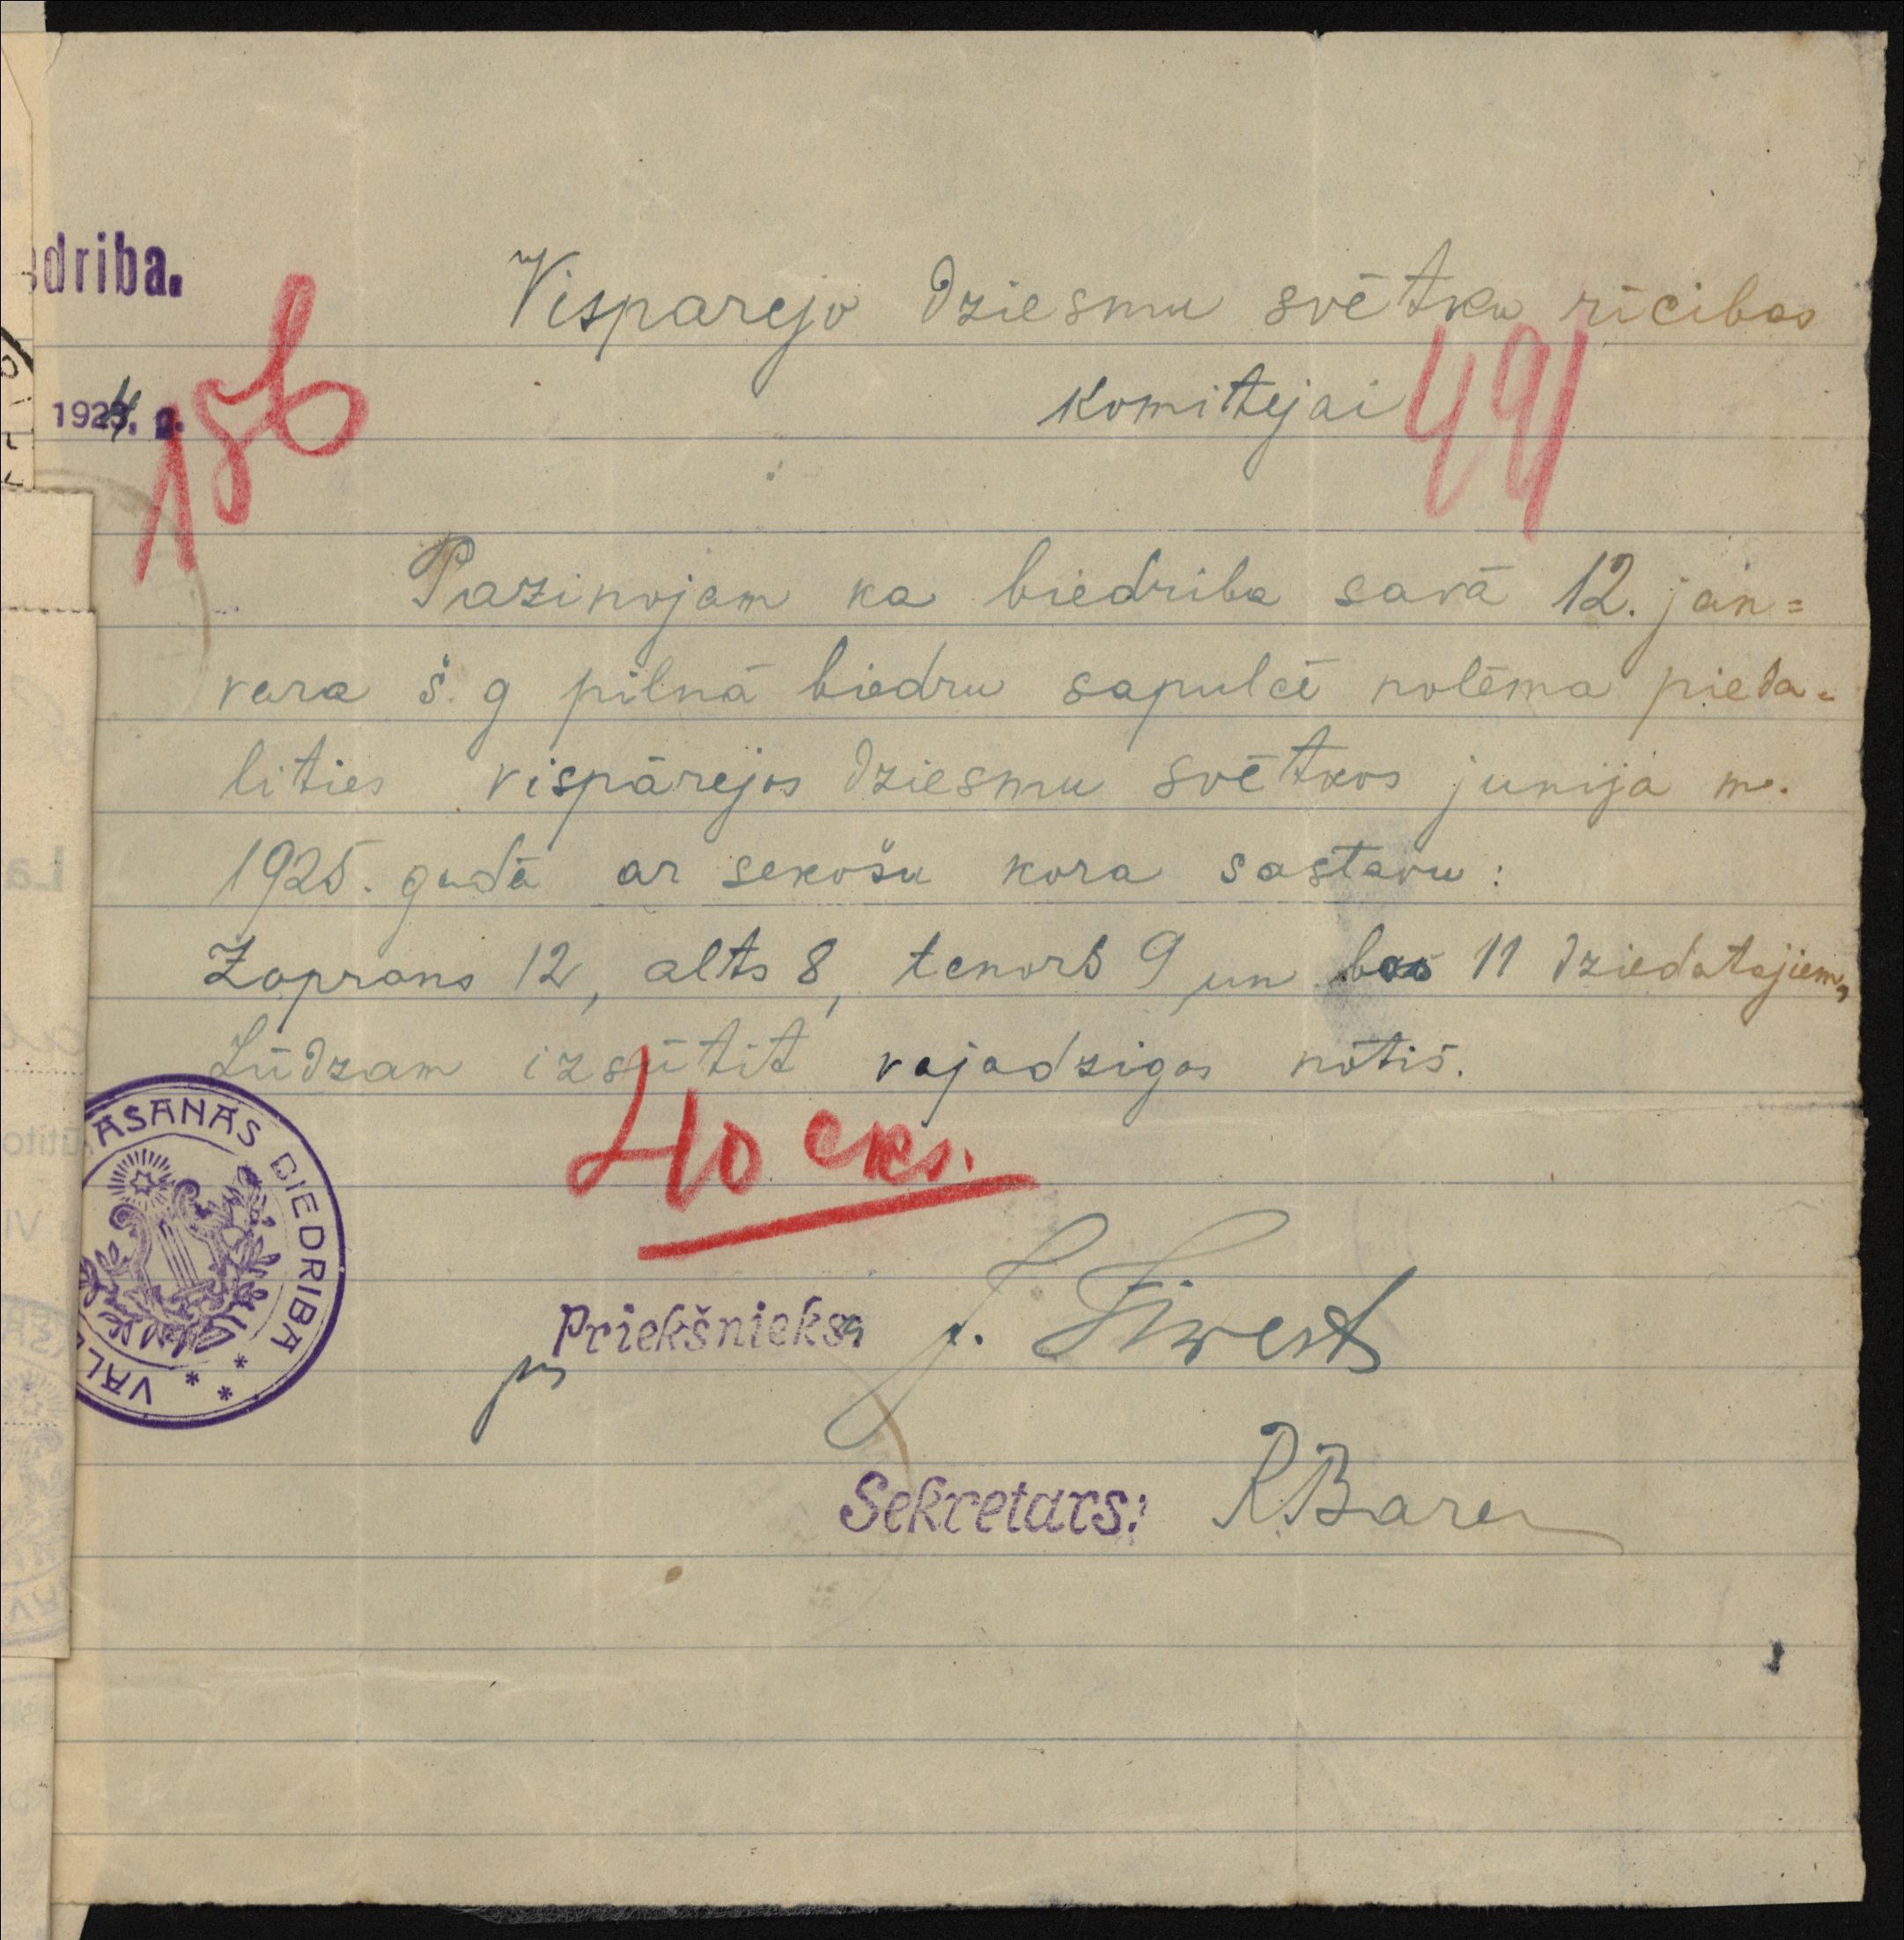 driba.
Visparejo dziesmu svētku rīcibas
komitejai
491
1924. g.
156
Pazinojam ka biedriba savā 12. jan=
vara š. g pilnā biedru sapulcē nolēma pieda=
lities vispārejos dziesmu svētkos junija m.
1925. gadā ar sekošu kora sastavu:
Zoprans 12, alts 8, tenors 9 un bas 11 dziedatajiem,
Lūdzam izsūtit vajadzigas nōtis.
40 eks.
ASANAS BIEDRIBA
VAL
Priekšnieks:
Sekretars: R.Bare